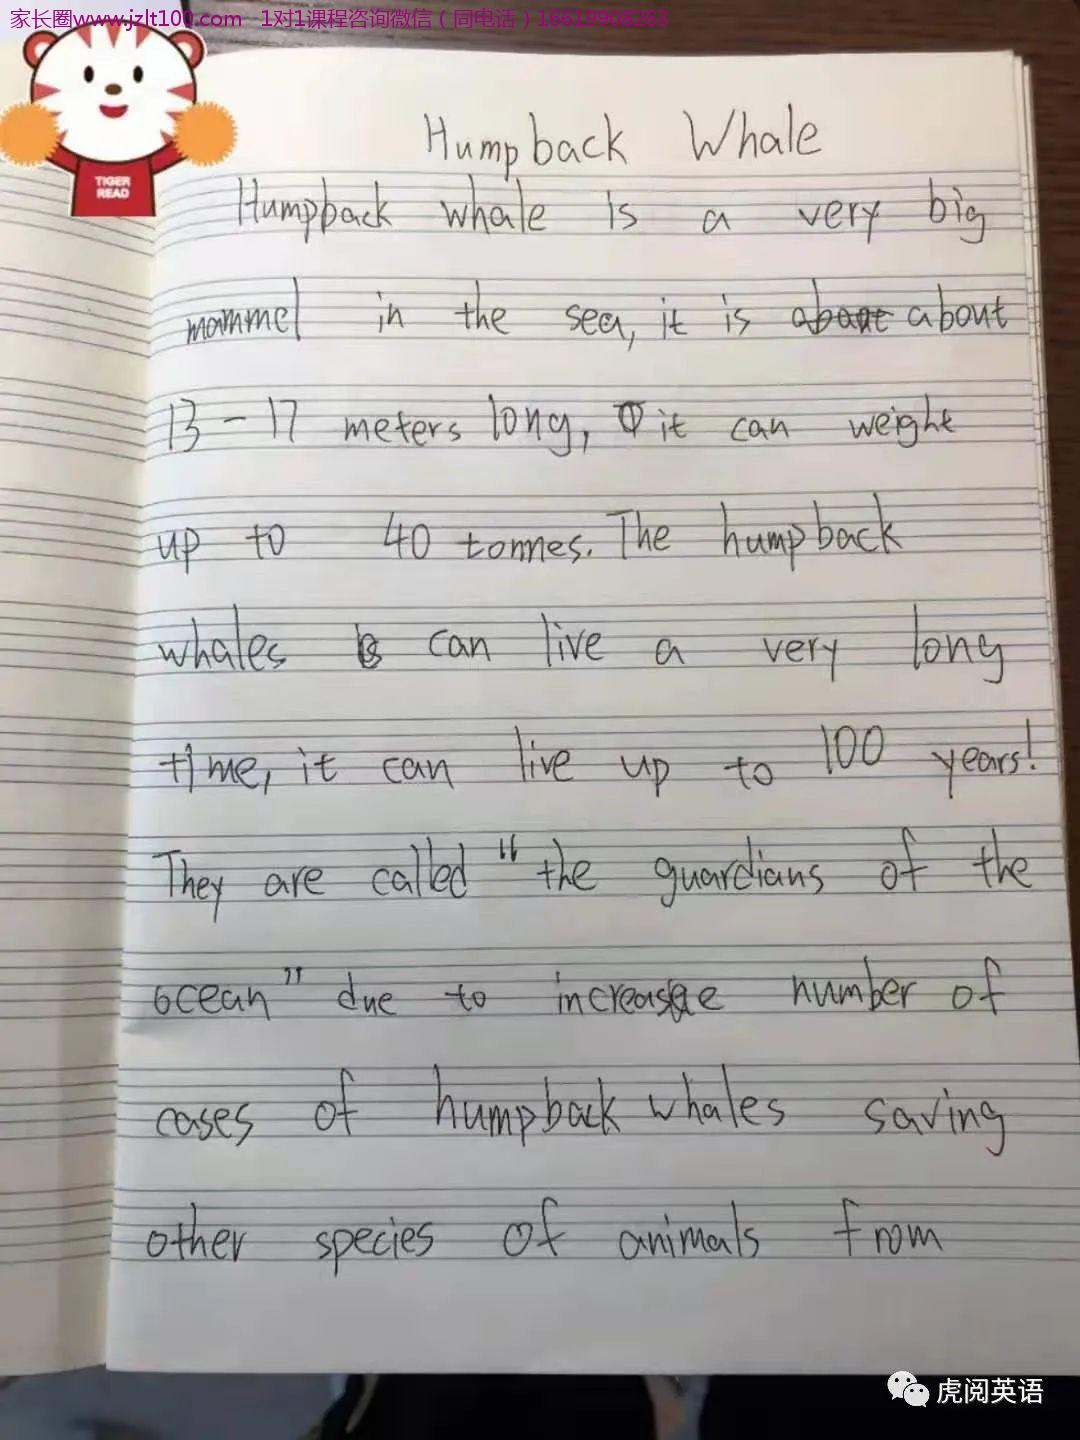 家长圈www.jzlt100.com 1对1课程咨询微信（同电话）16619908263
TIGER
READ
Humpback Whale
Humpback whale is a very big
mammel in the sea, it is about about
13-17 meters long, it can weight
up to 40 tonnes. The humpback
whales can live a very long
time, it can live up to 100 years!
They are called "the guardians of the
ocean" due to increase number of
cases of humpback whales saving
other species of animals from
虎阅英语